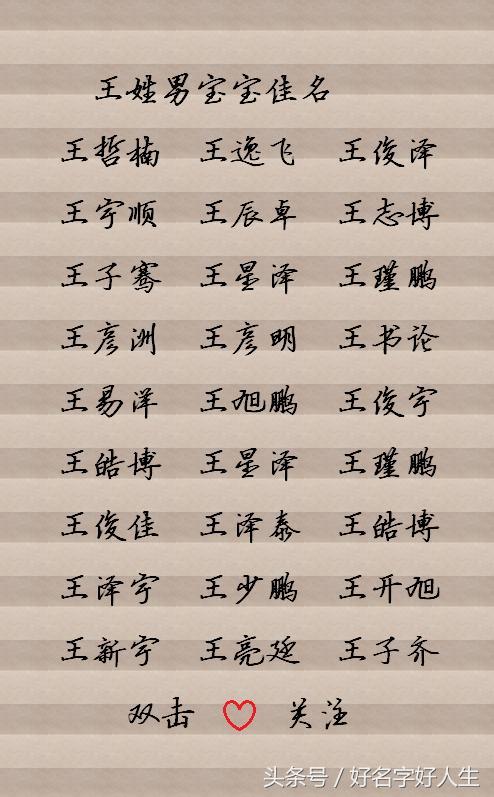 王姓男宝宝佳名
王哲楠 王逸飞 王俊泽
王宇顺 王辰卓 王志博
王子骞 王星泽 王瑾鹏
王彦洲 王彦明 王书论
王易洋 王旭鹏 王俊宇
王皓博 王星泽 王瑾鹏
王俊佳 王泽泰 王皓博
王泽宇 王少鹏 王开旭
王新宇 王亮延 王子齐
双击 关注
头条号 / 好名字好人生